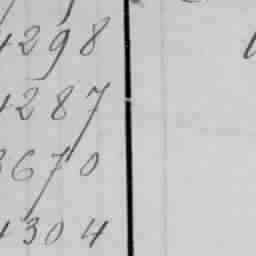 4298
4287
3670
4304